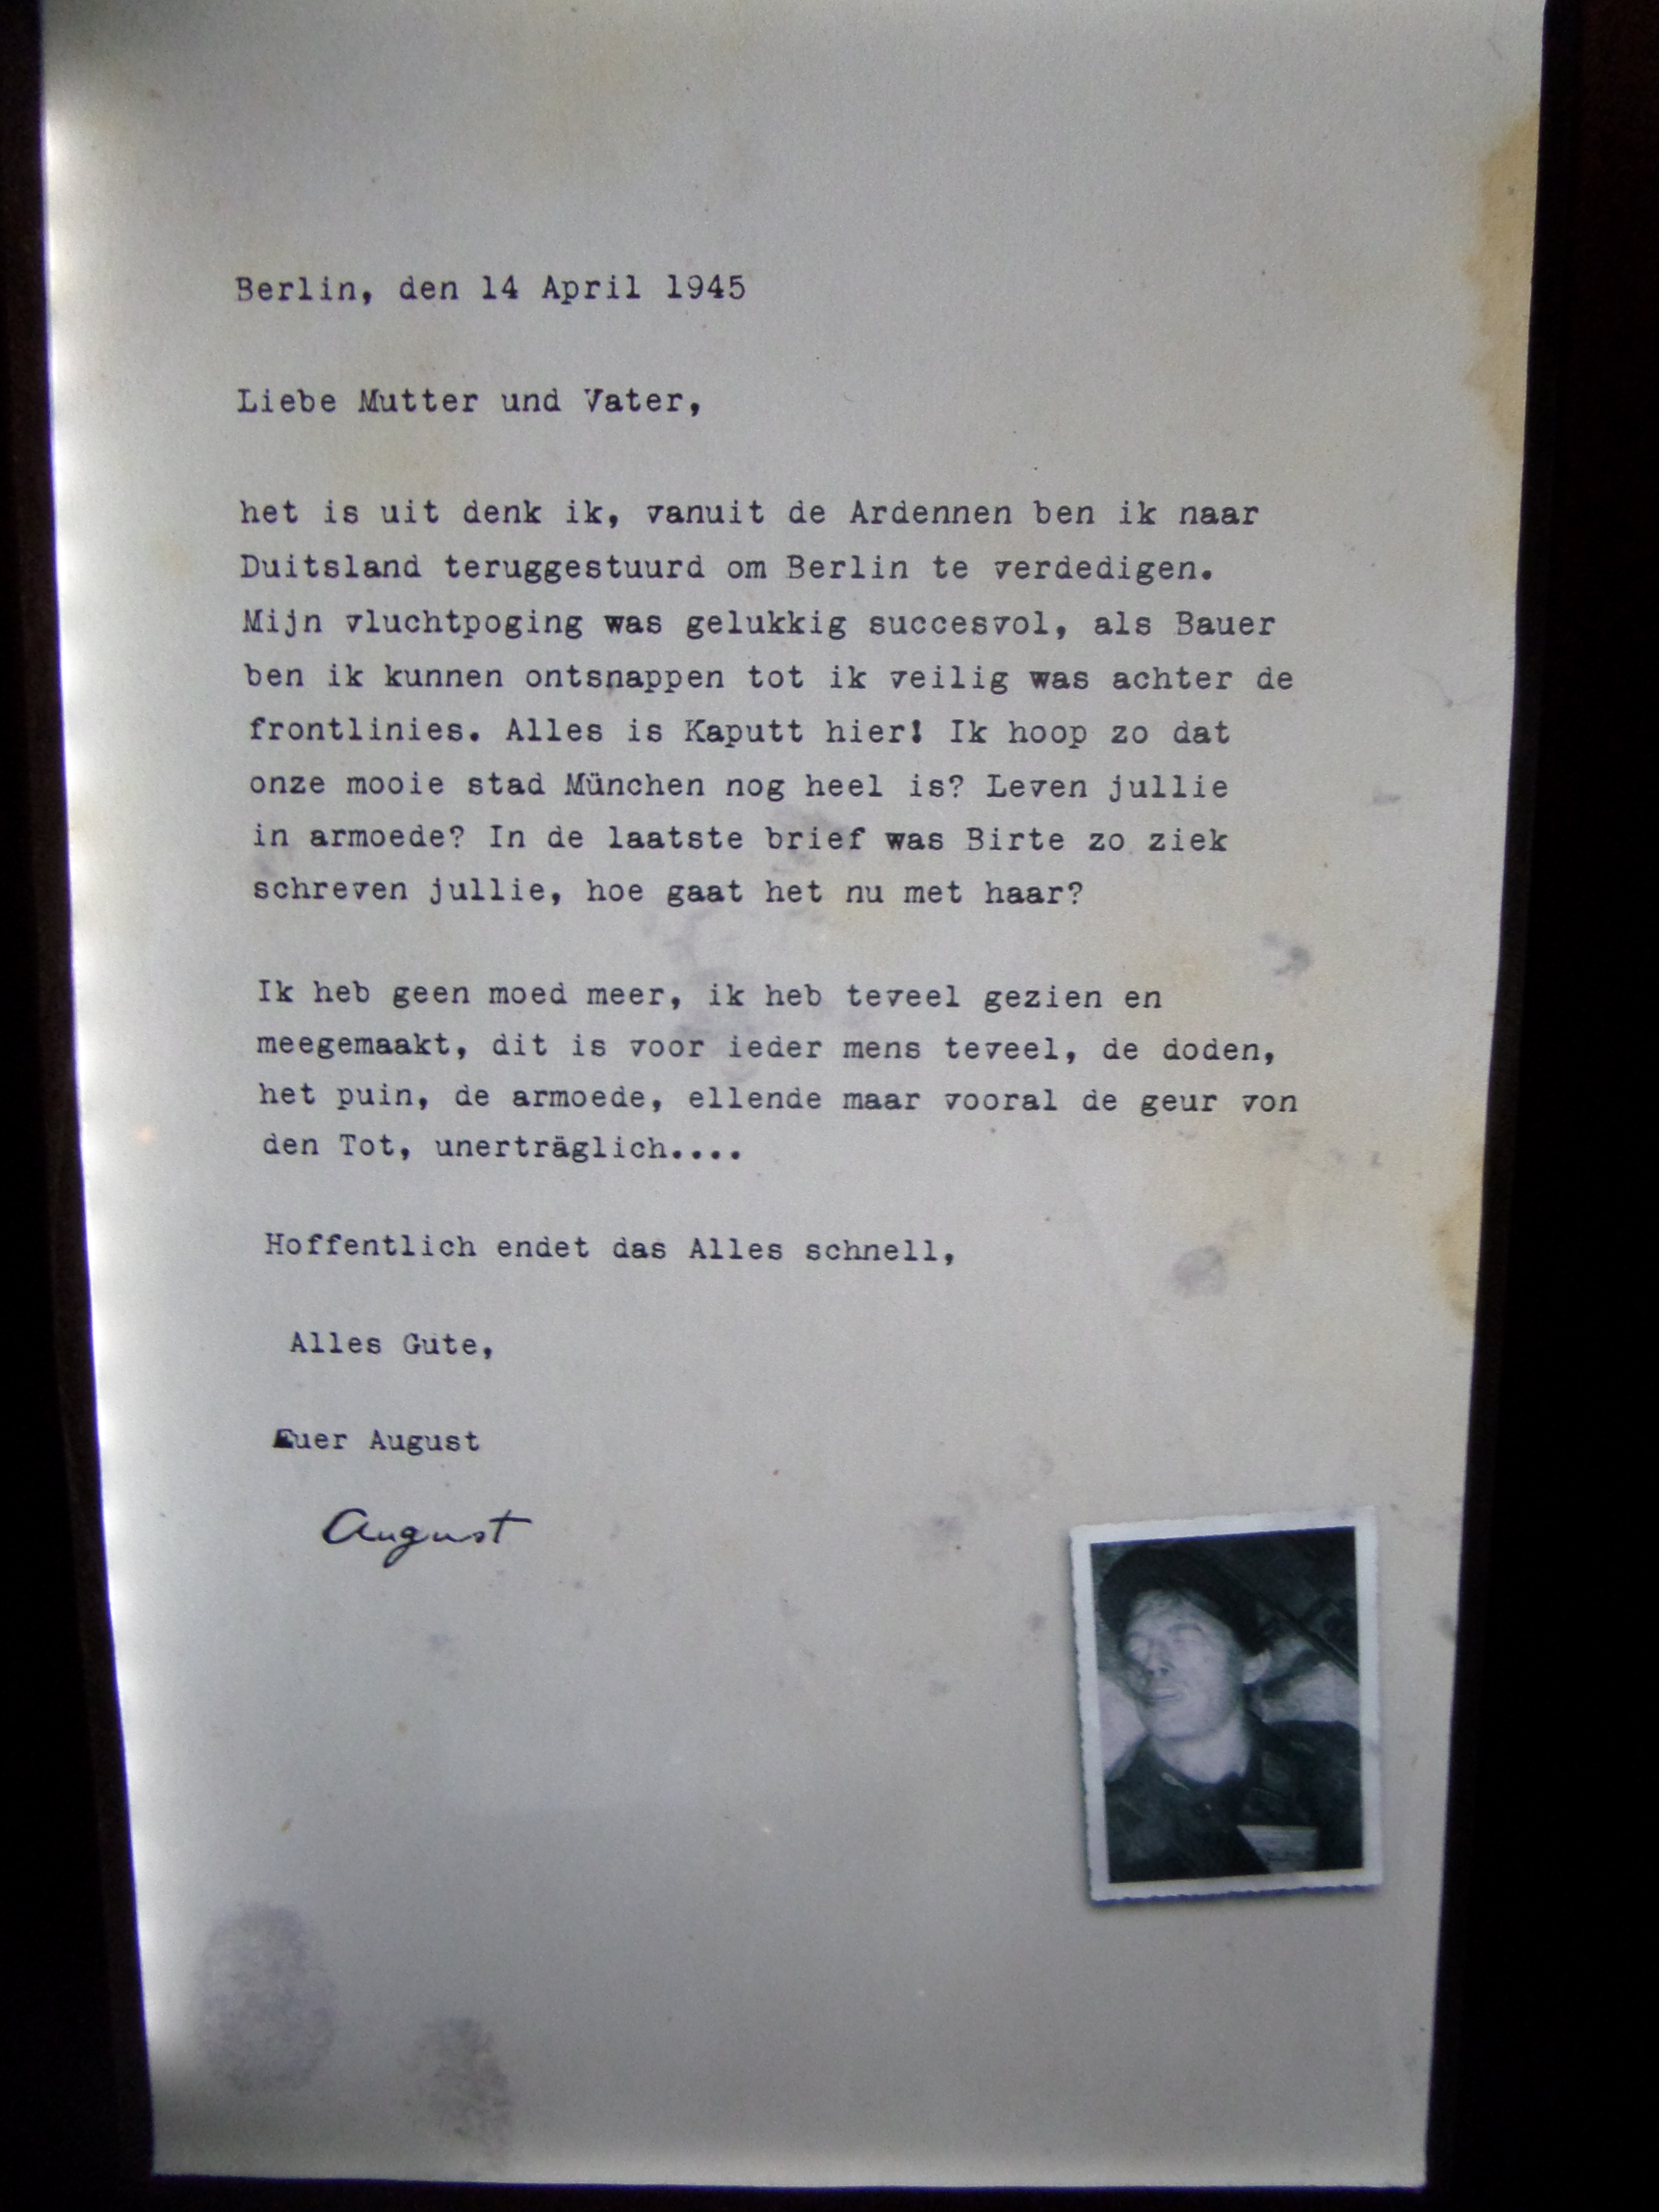 Berlin, den 14 April 1945
Liebe Mutter und Vater,
het is uit denk ik, vanuit de Ardennen ben ik naar
Duitsland teruggestuurd om Berlin te verdedigen.
Mijn vluchtpoging was gelukkig succesvol, als Bauer
ben ik kunnen ontsnappen tot ik veilig was achter de
frontlinies. Alles is Kaputt hier! Ik hoop zo dat
onze mooie stad München nog heel is? Leven jullie
in armoede? In de laatste brief was Birte zo ziek
schreven jullie, hoe gaat het nu met haar?
Ik heb geen moed meer, ik heb teveel gezien en
meegemaakt, dit is voor ieder mens teveel, de doden,
het puin, de armoede, ellende maar vooral de geur von
den Tot, unerträglich....
Hoffentlich endet das Alles schnell,
Alles Gute,
Euer August
August